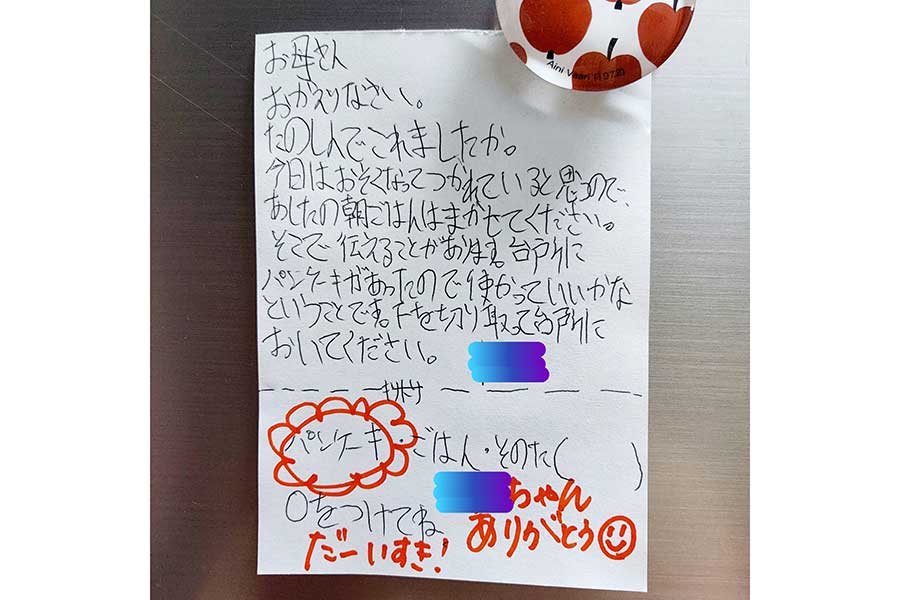 Aini Vaari ©1972
お母さん
おかえりなさい。
たのしんでこれましたか。
今日はおそくなってつかれていると思うので、
あしたの朝ごはんはまかせてください。
そこで伝えることがあります。台所に
パンケーキがあったので使かっていいかな
ということです。下を切り取って台所に
おいてください。
キリトリ
パンケーキ・ごはん・そのた( )
○をつけてね
ちゃん
ありがとう
だーいすき!